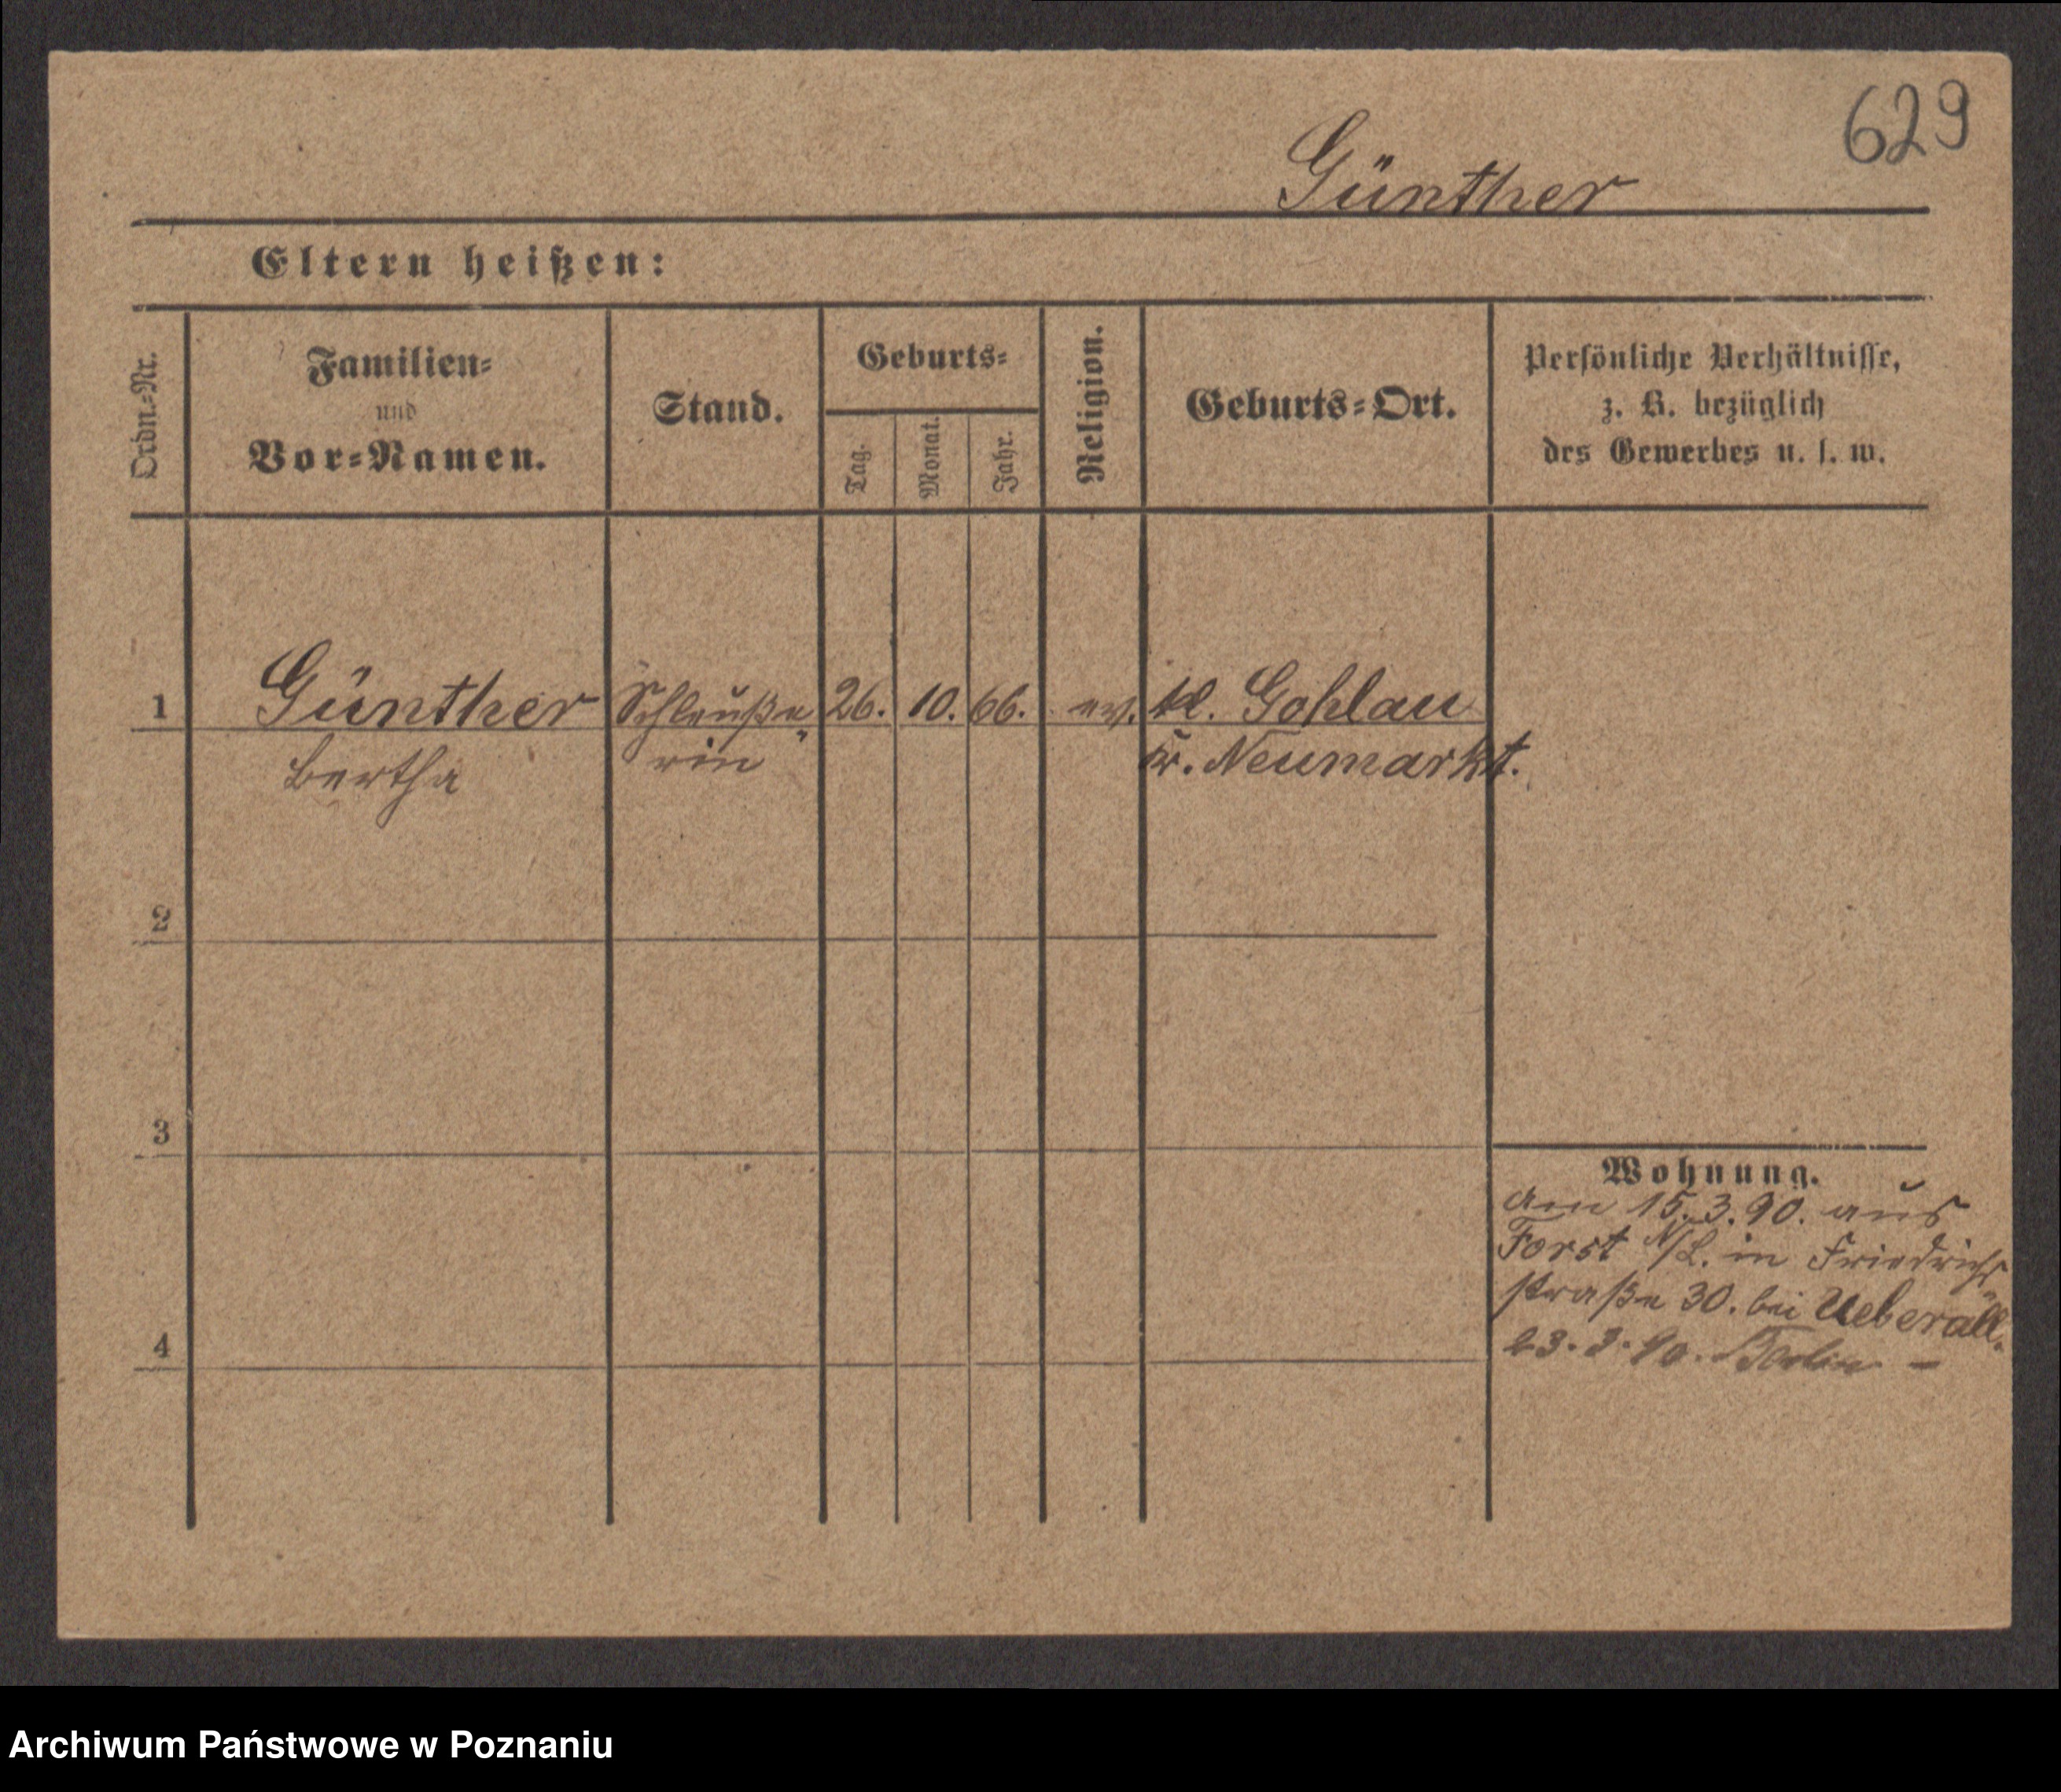 629
Günther
Eltern heißen:
Ordn.-Nr.
Familien-
und
Vor-Namen.
Stand.
Geburts-
Tag.
Monat.
Jahr.
Religion.
Geburts-Ort.
Persönliche Verhältnisse,
z. B. bezüglich
des Gewerbes u. s. w.
1 Günther Schleuße 26. 10. 66. ev. Kl. Gohlau
Bertha rin Kr. Neumarkt.
2
3
4
Wohnung.
Am 15.3.90. aus
Forst N/L. in Friedrichs
straße 30. bei Ueberall.
23.3.90. Berlin –
Archiwum Państwowe w Poznaniu